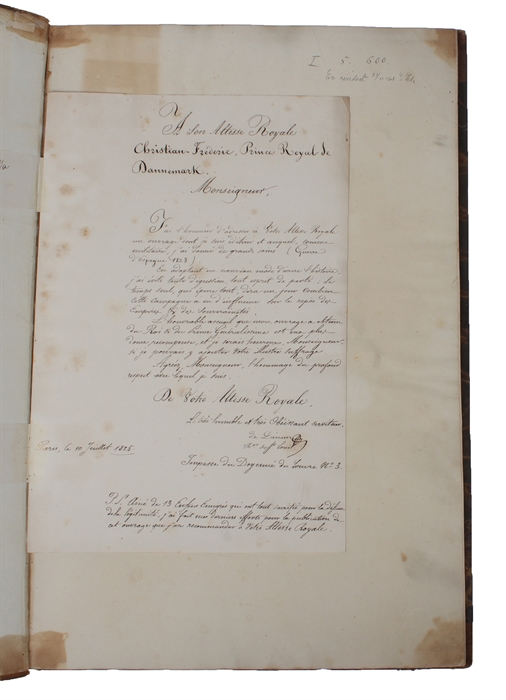 I 5. 600
A Son Altesse Royale
Christian-Fréderic, Prince Royal de
Dannemark.
Monseigneur,
J'ai l'honneur d'adresser à Votre Altesse Royale
un ouvrage dont je suis l'auteur et auquel, comme
militaire, j'ai donné de grands soins (Guerre
d'Espagne 1823)
En adoptant un nouveau mode d'écrire l'histoire,
j'ai évité toute digression, tout esprit de parti: le
temps seul, qui épure tout, dira un jour combien
cette campagne a eu d'influence sur le repos des
Empires & des Souverainetés.
L'honorable accueil que mon ouvrage a obtenu
du Roi & du Prince Généralissime est ma plus
douce récompense, et je serais heureux, Monseigneur,
si je pouvais y ajouter Votre illustre suffrage
Agréez, Monseigneur, l'hommage du profond
respect avec lequel je suis.
De Votre Altesse Royale.
Le très humble et très Obéissant serviteur
Paris, le 10 Juillet 1825.
Impasse du Doyenné du Louvre N° 3.
P.S. Ainé de 13 Emigrés qui ont tout sacrifié pour la défense
de la légitimité, j'ai fait mes derniers efforts pour la publication de
cet ouvrage que j'ose recommander à Votre Altesse Royale.